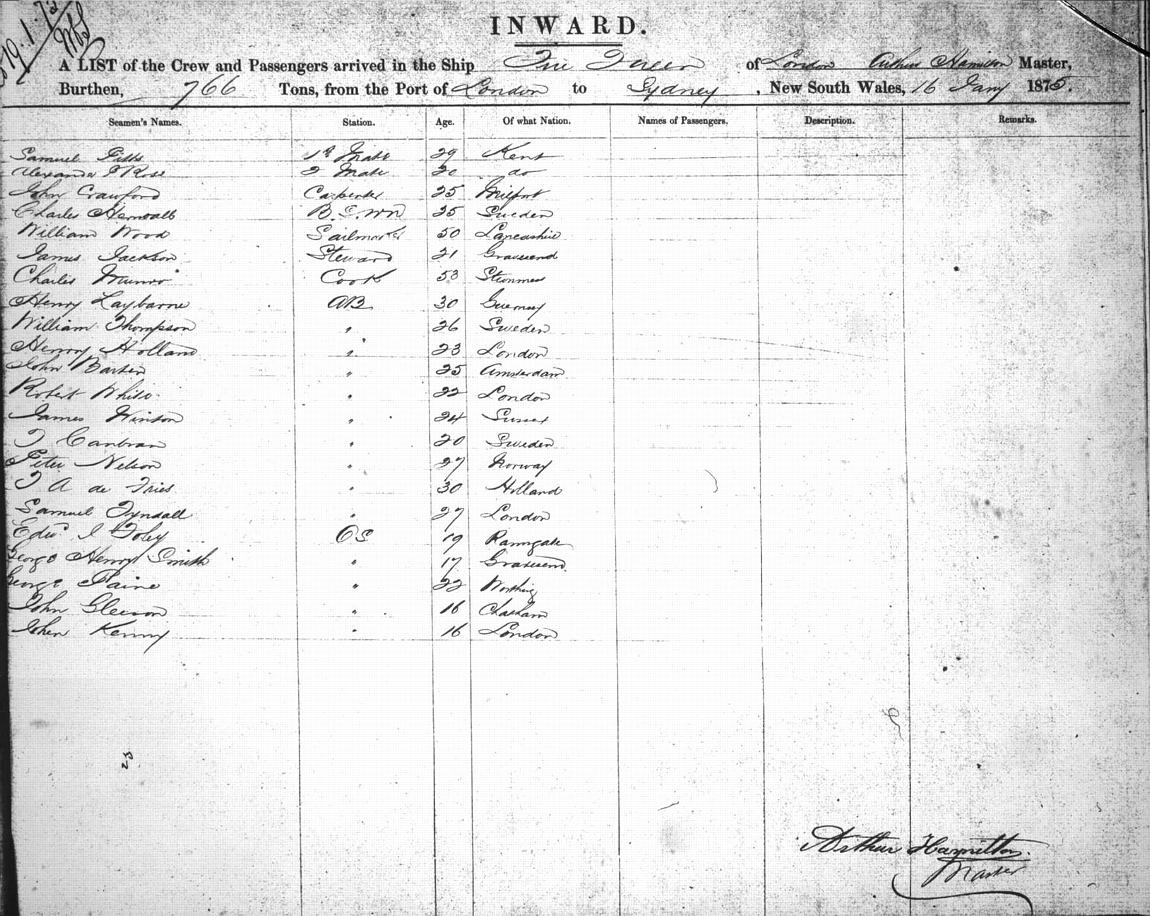 INWARD.
A LIST of the Crew and Passengers arrived in the Ship of London Arthur Hamilton Master,
Burthen, 766 Tons, from the Port of London to Sydney, New South Wales, 16 Jany 1875.
Seamen's Names. Station. Age. Of what Nation. Names of Passengers. Description. Remarks.
Samuel Pitts 1st Mate 29 Kent
Alexander Rose 2 Mate do
John Crawford Carpenter 25 Milfort
Charles 25 Sweden
William Wood Sailmaker 50 Lancashire
James Jackson Steward 21 Gravesend
Charles Munro Cook 53
Henry Laybarne AB 30 Guernsey
William Thompson " 26 Sweden
Henry Holland " 23 London
John " 25 Amsterdam
Robert White " 22 London
James Winson " 24 Sussex
" 20 Sweden
Peter Nelson " 27 Norway
A de Fries " 30 Holland
Samuel Tyndall " 27 London
Edwd J Foley OS 19 Ramsgate
George Henry Smith " 17 Gravesend
George Paine " 22 Worthing
John Gleeson " 16 Chatham
John Kenny " 16 London
23
Arthur Hamilton
Master